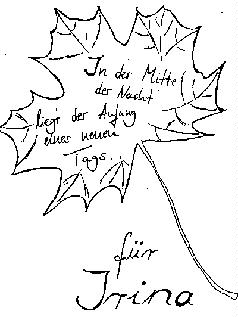 In der Mitte
der Nacht
liegt der Anfang
eines neuen
Tags.
für
Irina